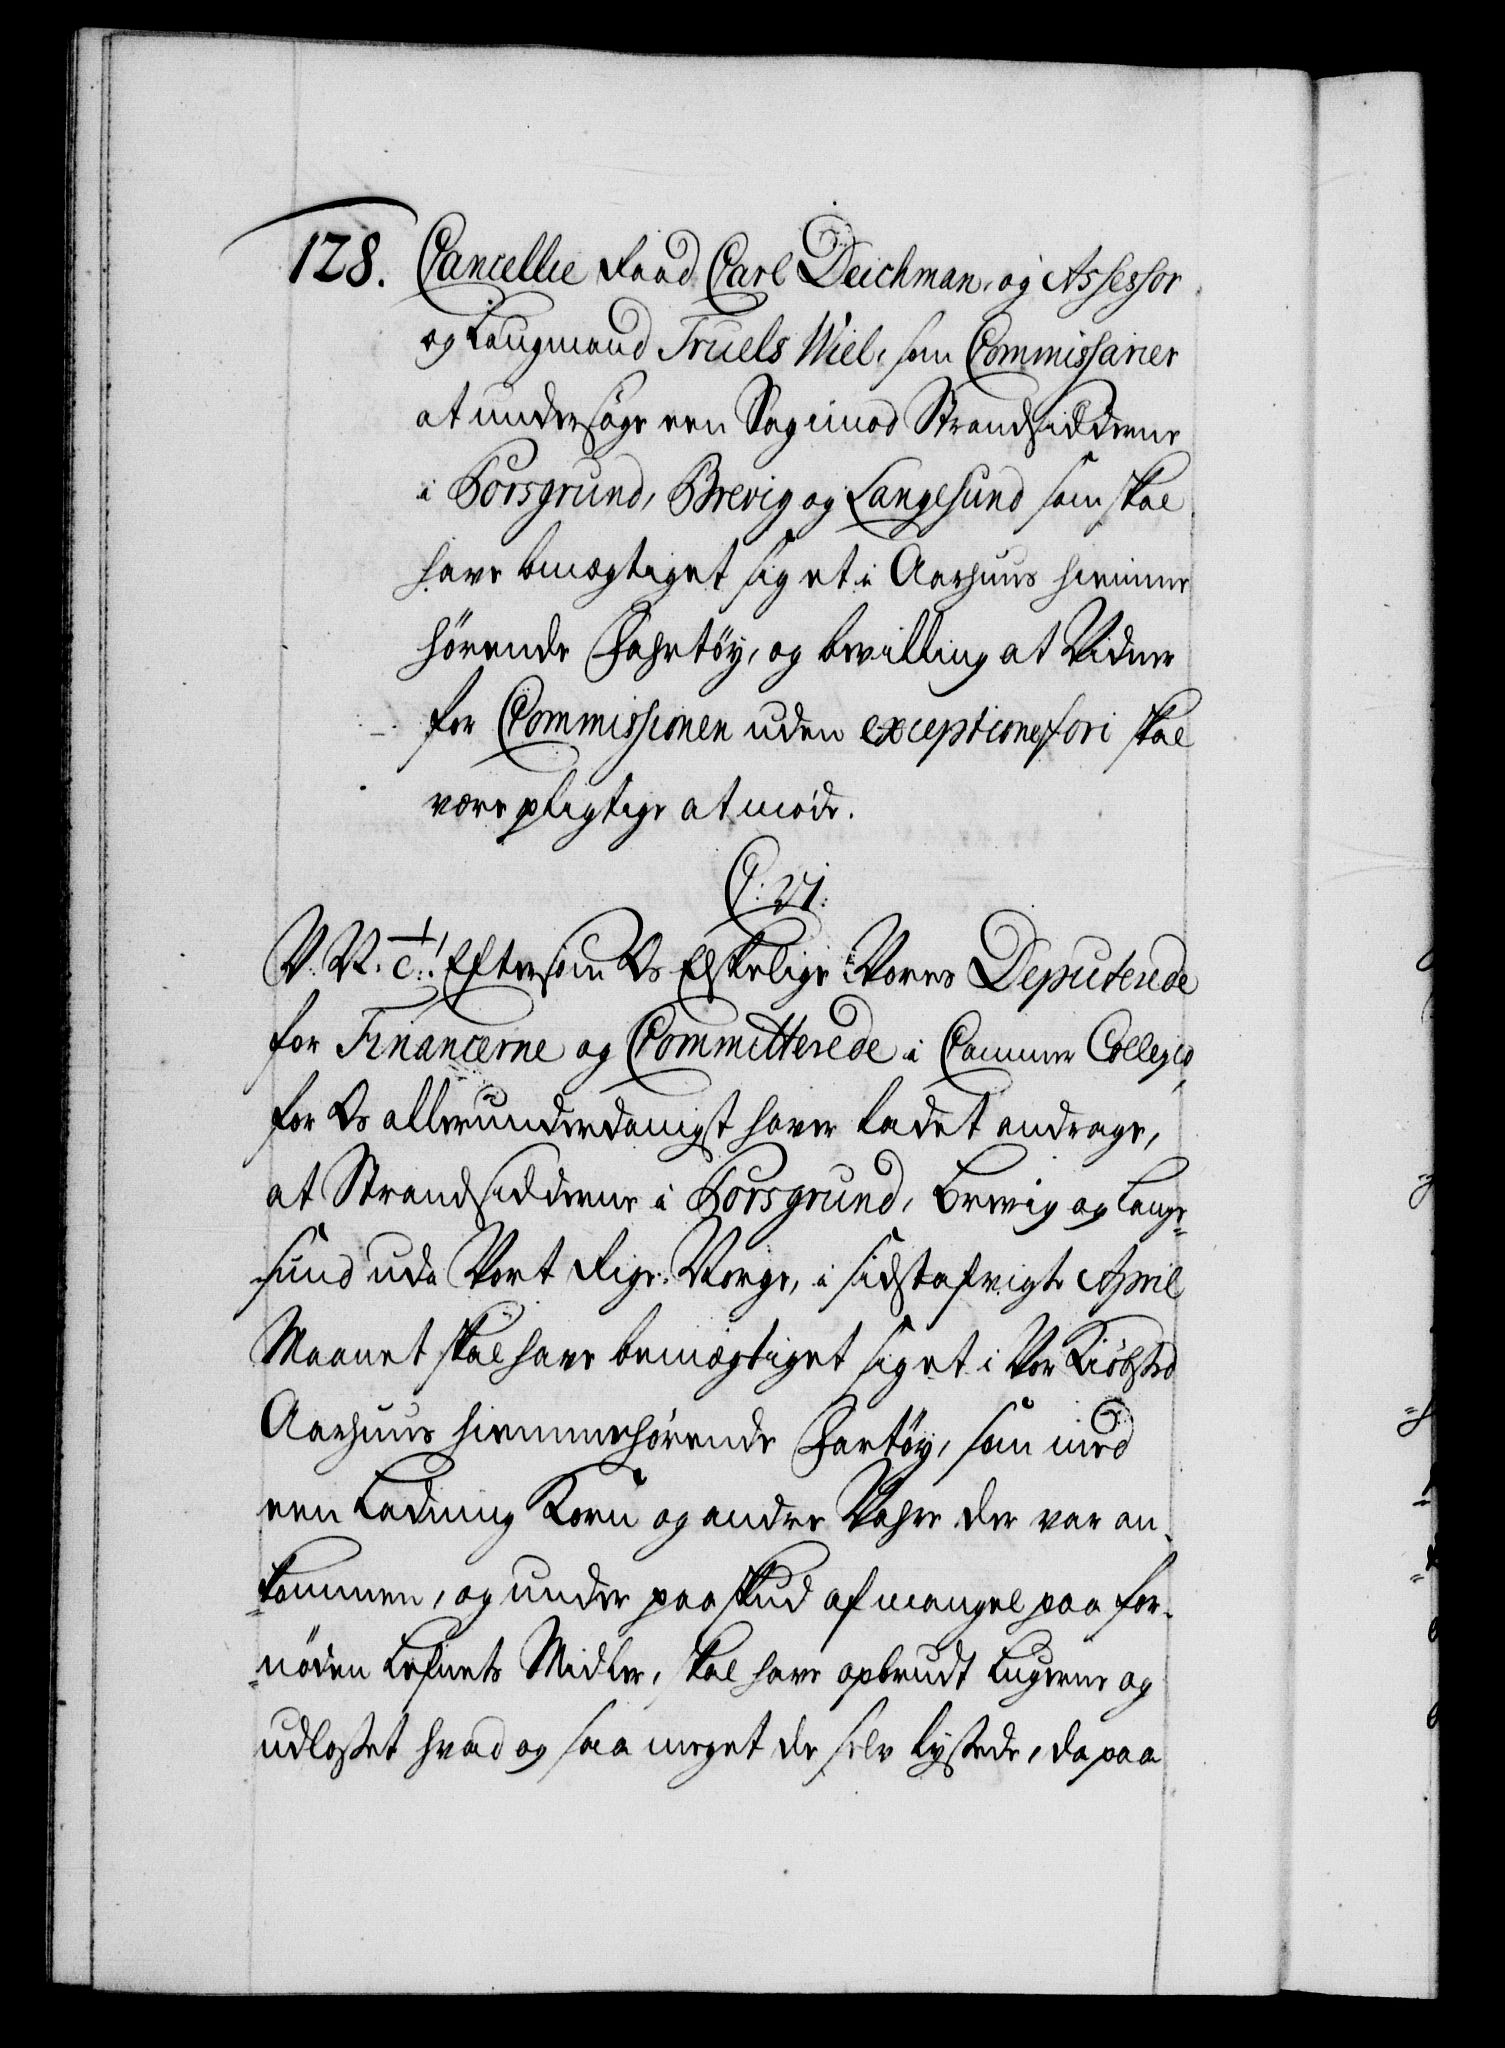 128. Cancellie Raad Carl Deichman, og Assessor
og Laugmand Truels Wiel, som Commissarier
at undersøge een Sag imod Strandsidderne
i Porsgrund, Brevig og Langesund som skal
have bemægtiget sig et i Aarhuus hiemme
hørende Fahrtøy, og bevilling at Vidner
for Commissionen uden exceptione fori skal
være pligtige at møde.
C: VI:
V. W. c: Eftersom Os Elskelige Vores Deputerede
for Financerne og Committerede i Cammer Collegio,
for Os allerunderdanigst haver ladet andrage,
at Strandsidderne i Porsgrund, Brevig og Lange-
sund udi Vort Rige Norge, i sidstafvigte April
Maanet skal have bemægtiget sig et i Vor Kiøbsted
Aarhuus hiemmehørende Fartøy, som med
een Ladning Korn og andre Vahre der var an-
kommen, og under paaskud af mangel paa for-
nøden Lefnets Midler, skal have opbrudt Lugerne og
udlosset hvad og saa meget de selv lystede, da paa